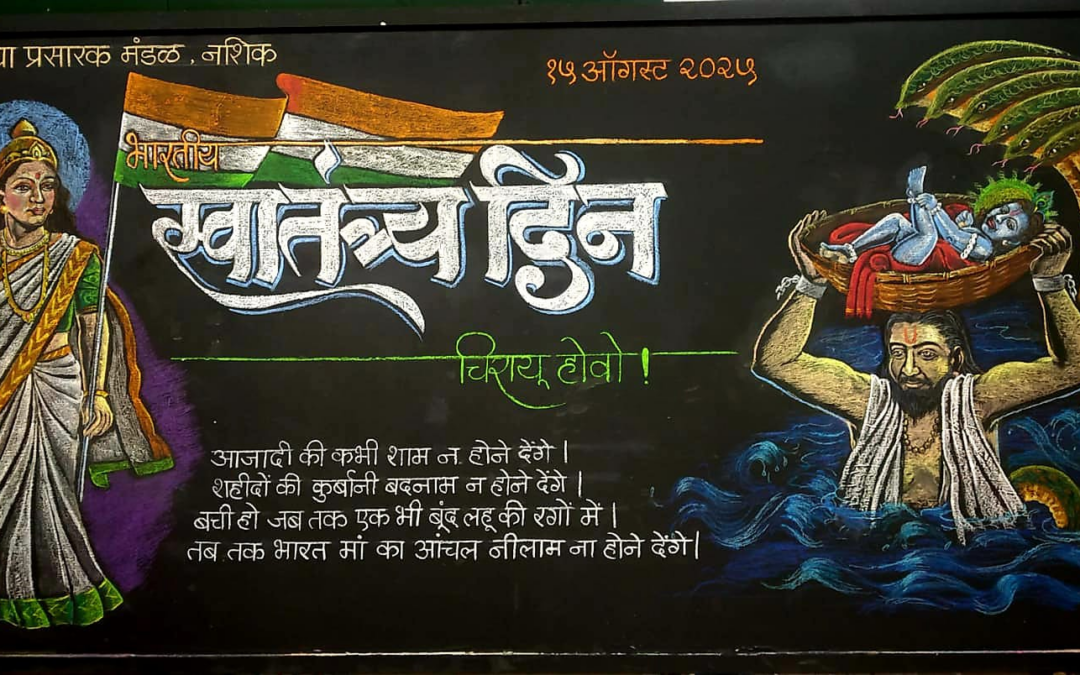 प्रसारक मंडळ, नाशिक
१५ ऑगस्ट २०२५
भारतीय
स्वातंत्र्य दिन
चिरायू होवो!
आजादी की कभी शाम न होने देंगे।
शहीदों की कुर्बानी बदनाम न होने देंगे।
बची हो जब तक एक भी बूंद लहू की रगों में।
तब तक भारत मां का आंचल नीलाम ना होने देंगे।